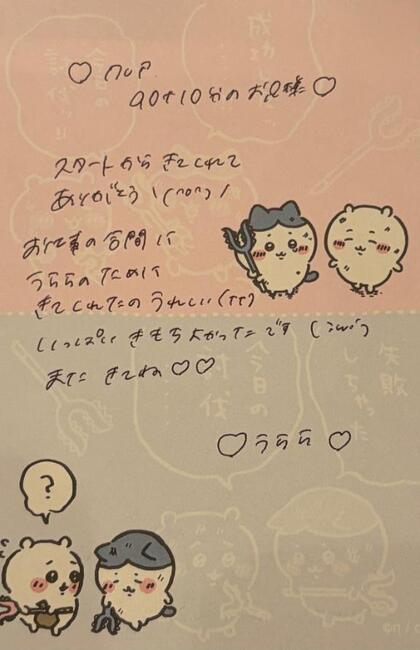 90+10分のお兄様♡
スタートからきてくれて
ありがとう！(^o^)/
お仕事の合間に
うららのために
きてくれたのうれしい(TT)
いっぱい きもちよかったです
また きてね♡♡
♡うらら♡
?
今日の
討伐
失敗
しちゃった